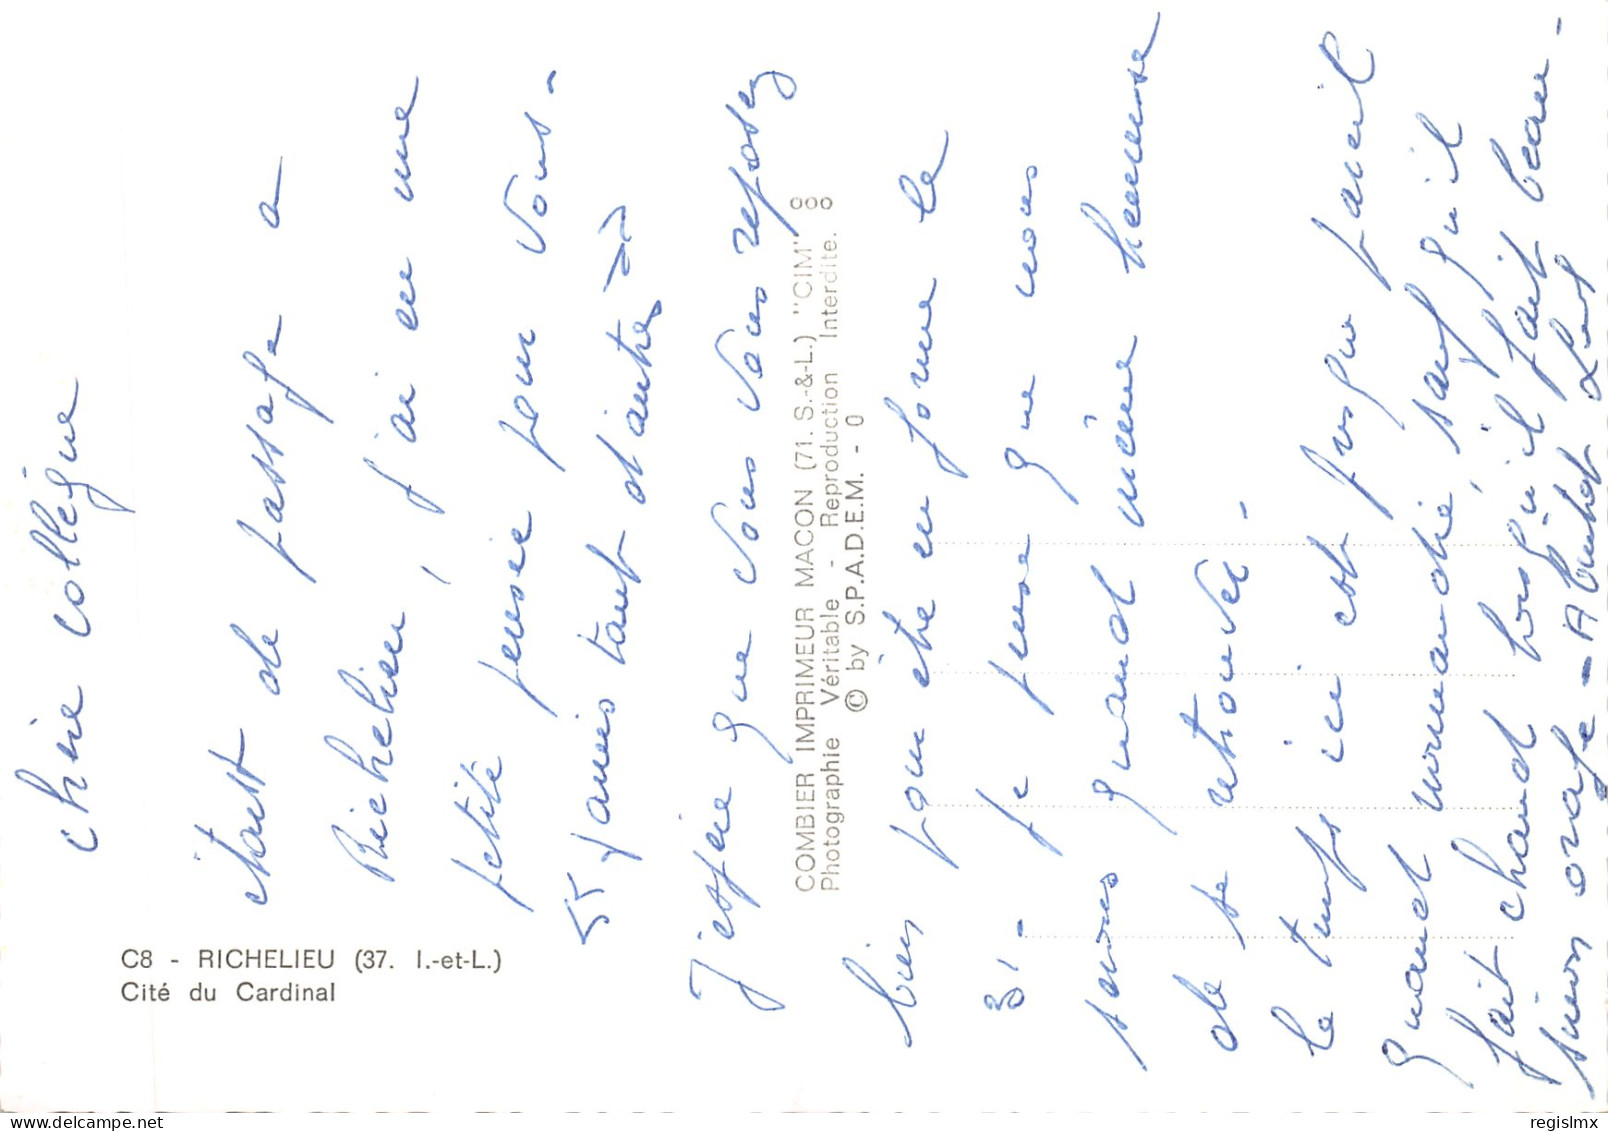 chère collègue
étant de passage a
Richelieu, j'ai eu une
petite pensée pour vous -
55 tant d'autres
J'espère que vous vous reposez
bien pour être en forme le
31 - je pense que nous
serons quand même heureuse
de se retrouver -
le temps ici est pareil
quand normandie, sauf qu'il
fait chaud lorsqu'il fait beau -
sinon orage - A bientot
C8 - RICHELIEU (37. I.-et-L.)
Cité du Cardinal
COMBIER IMPRIMEUR MACON (71. S.-&-L.) "CIM"
Photographie Véritable - Reproduction Interdite.
© by S.P.A.D.E.M. - 0
regislmx